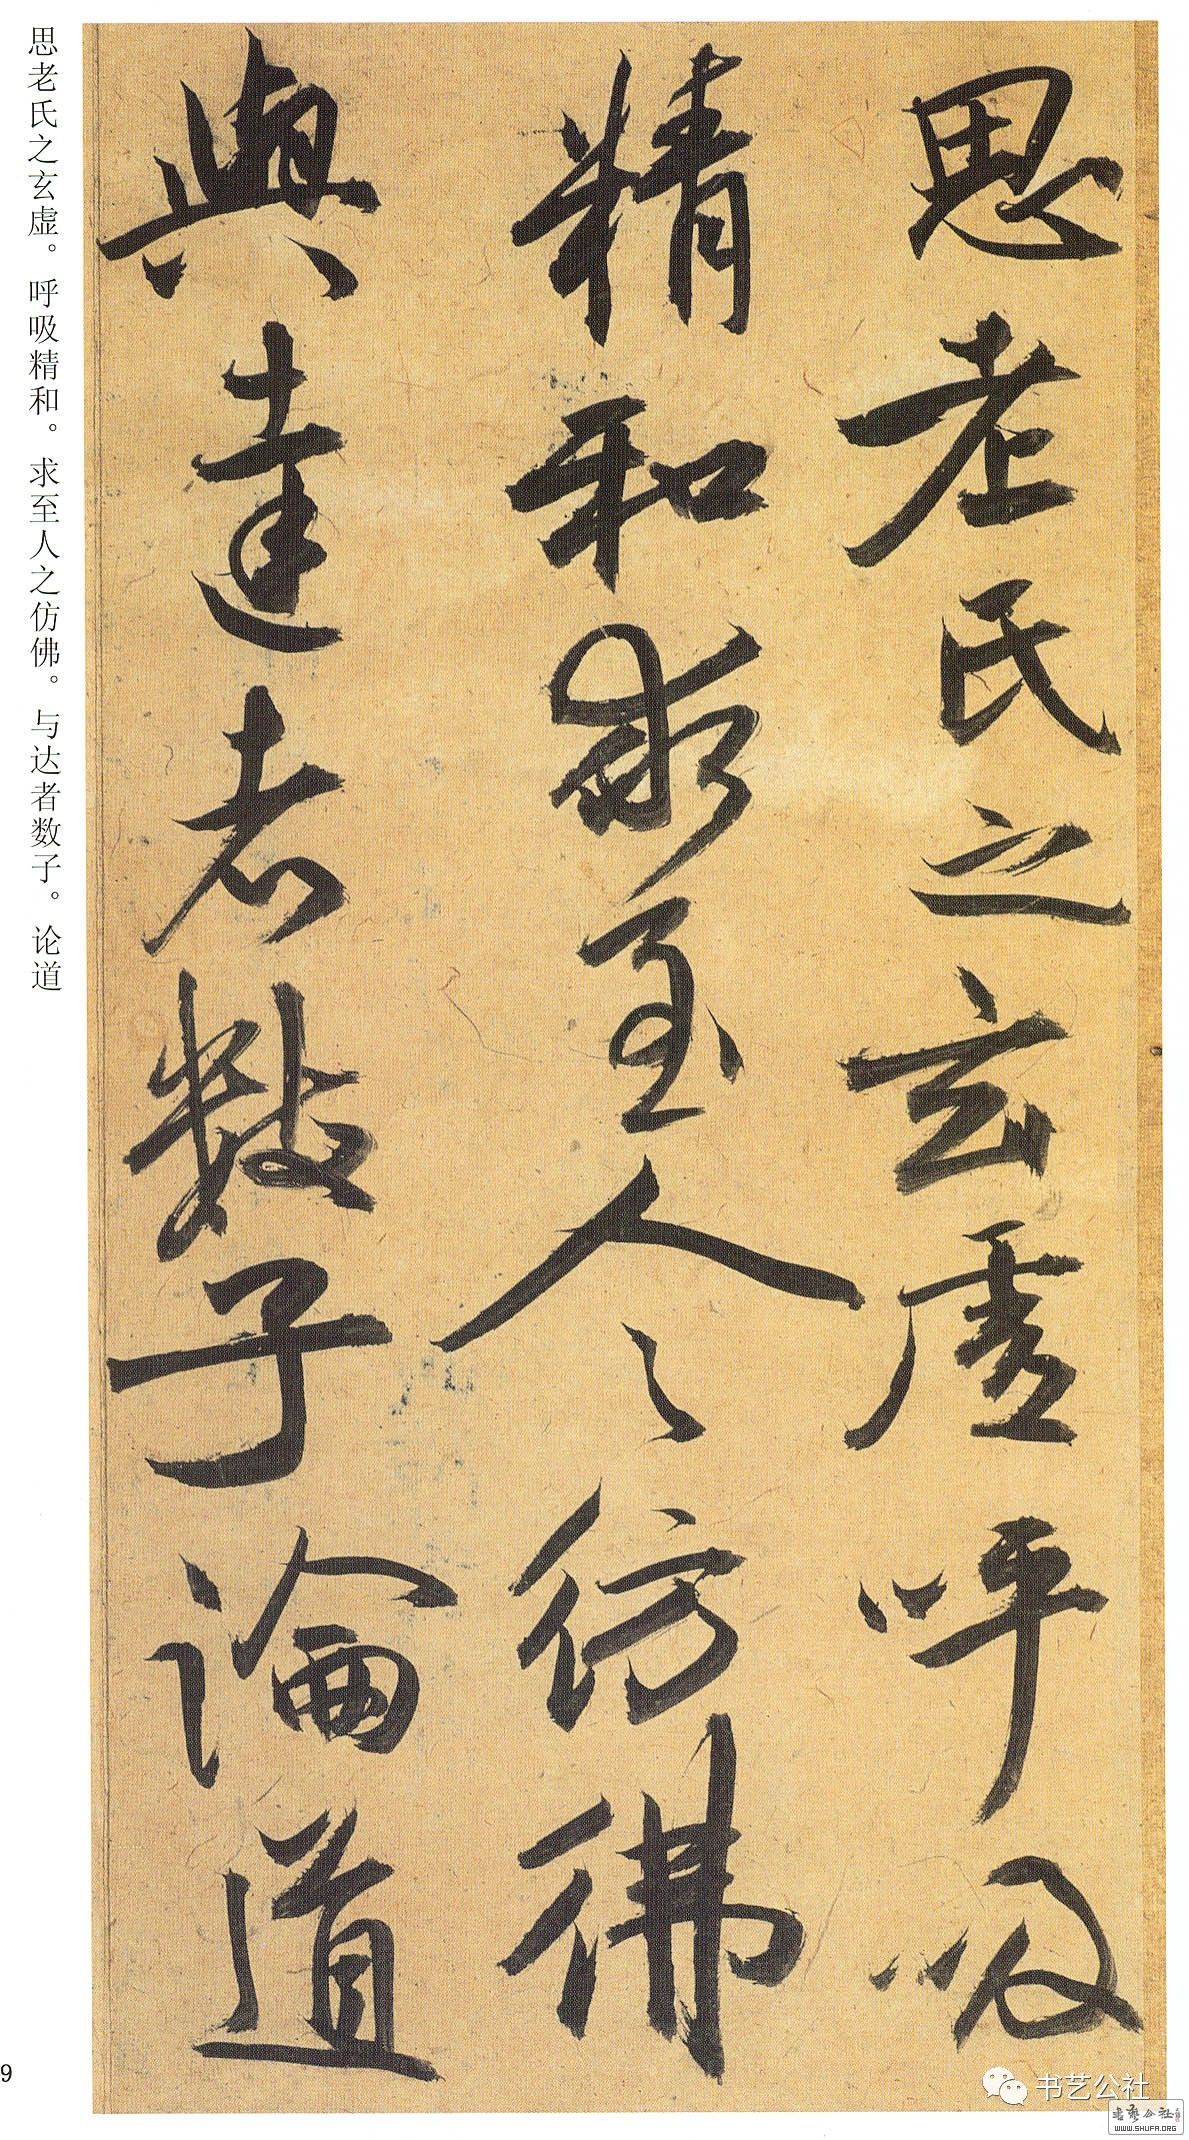 思老氏之玄虛呼吸
精和求至人之仿佛
與達者數子論道
思老氏之玄虚。呼吸精和。求至人之仿佛。与达者数子。论道
9
书艺公社
书艺公社
WWW.SHUFA.ORG